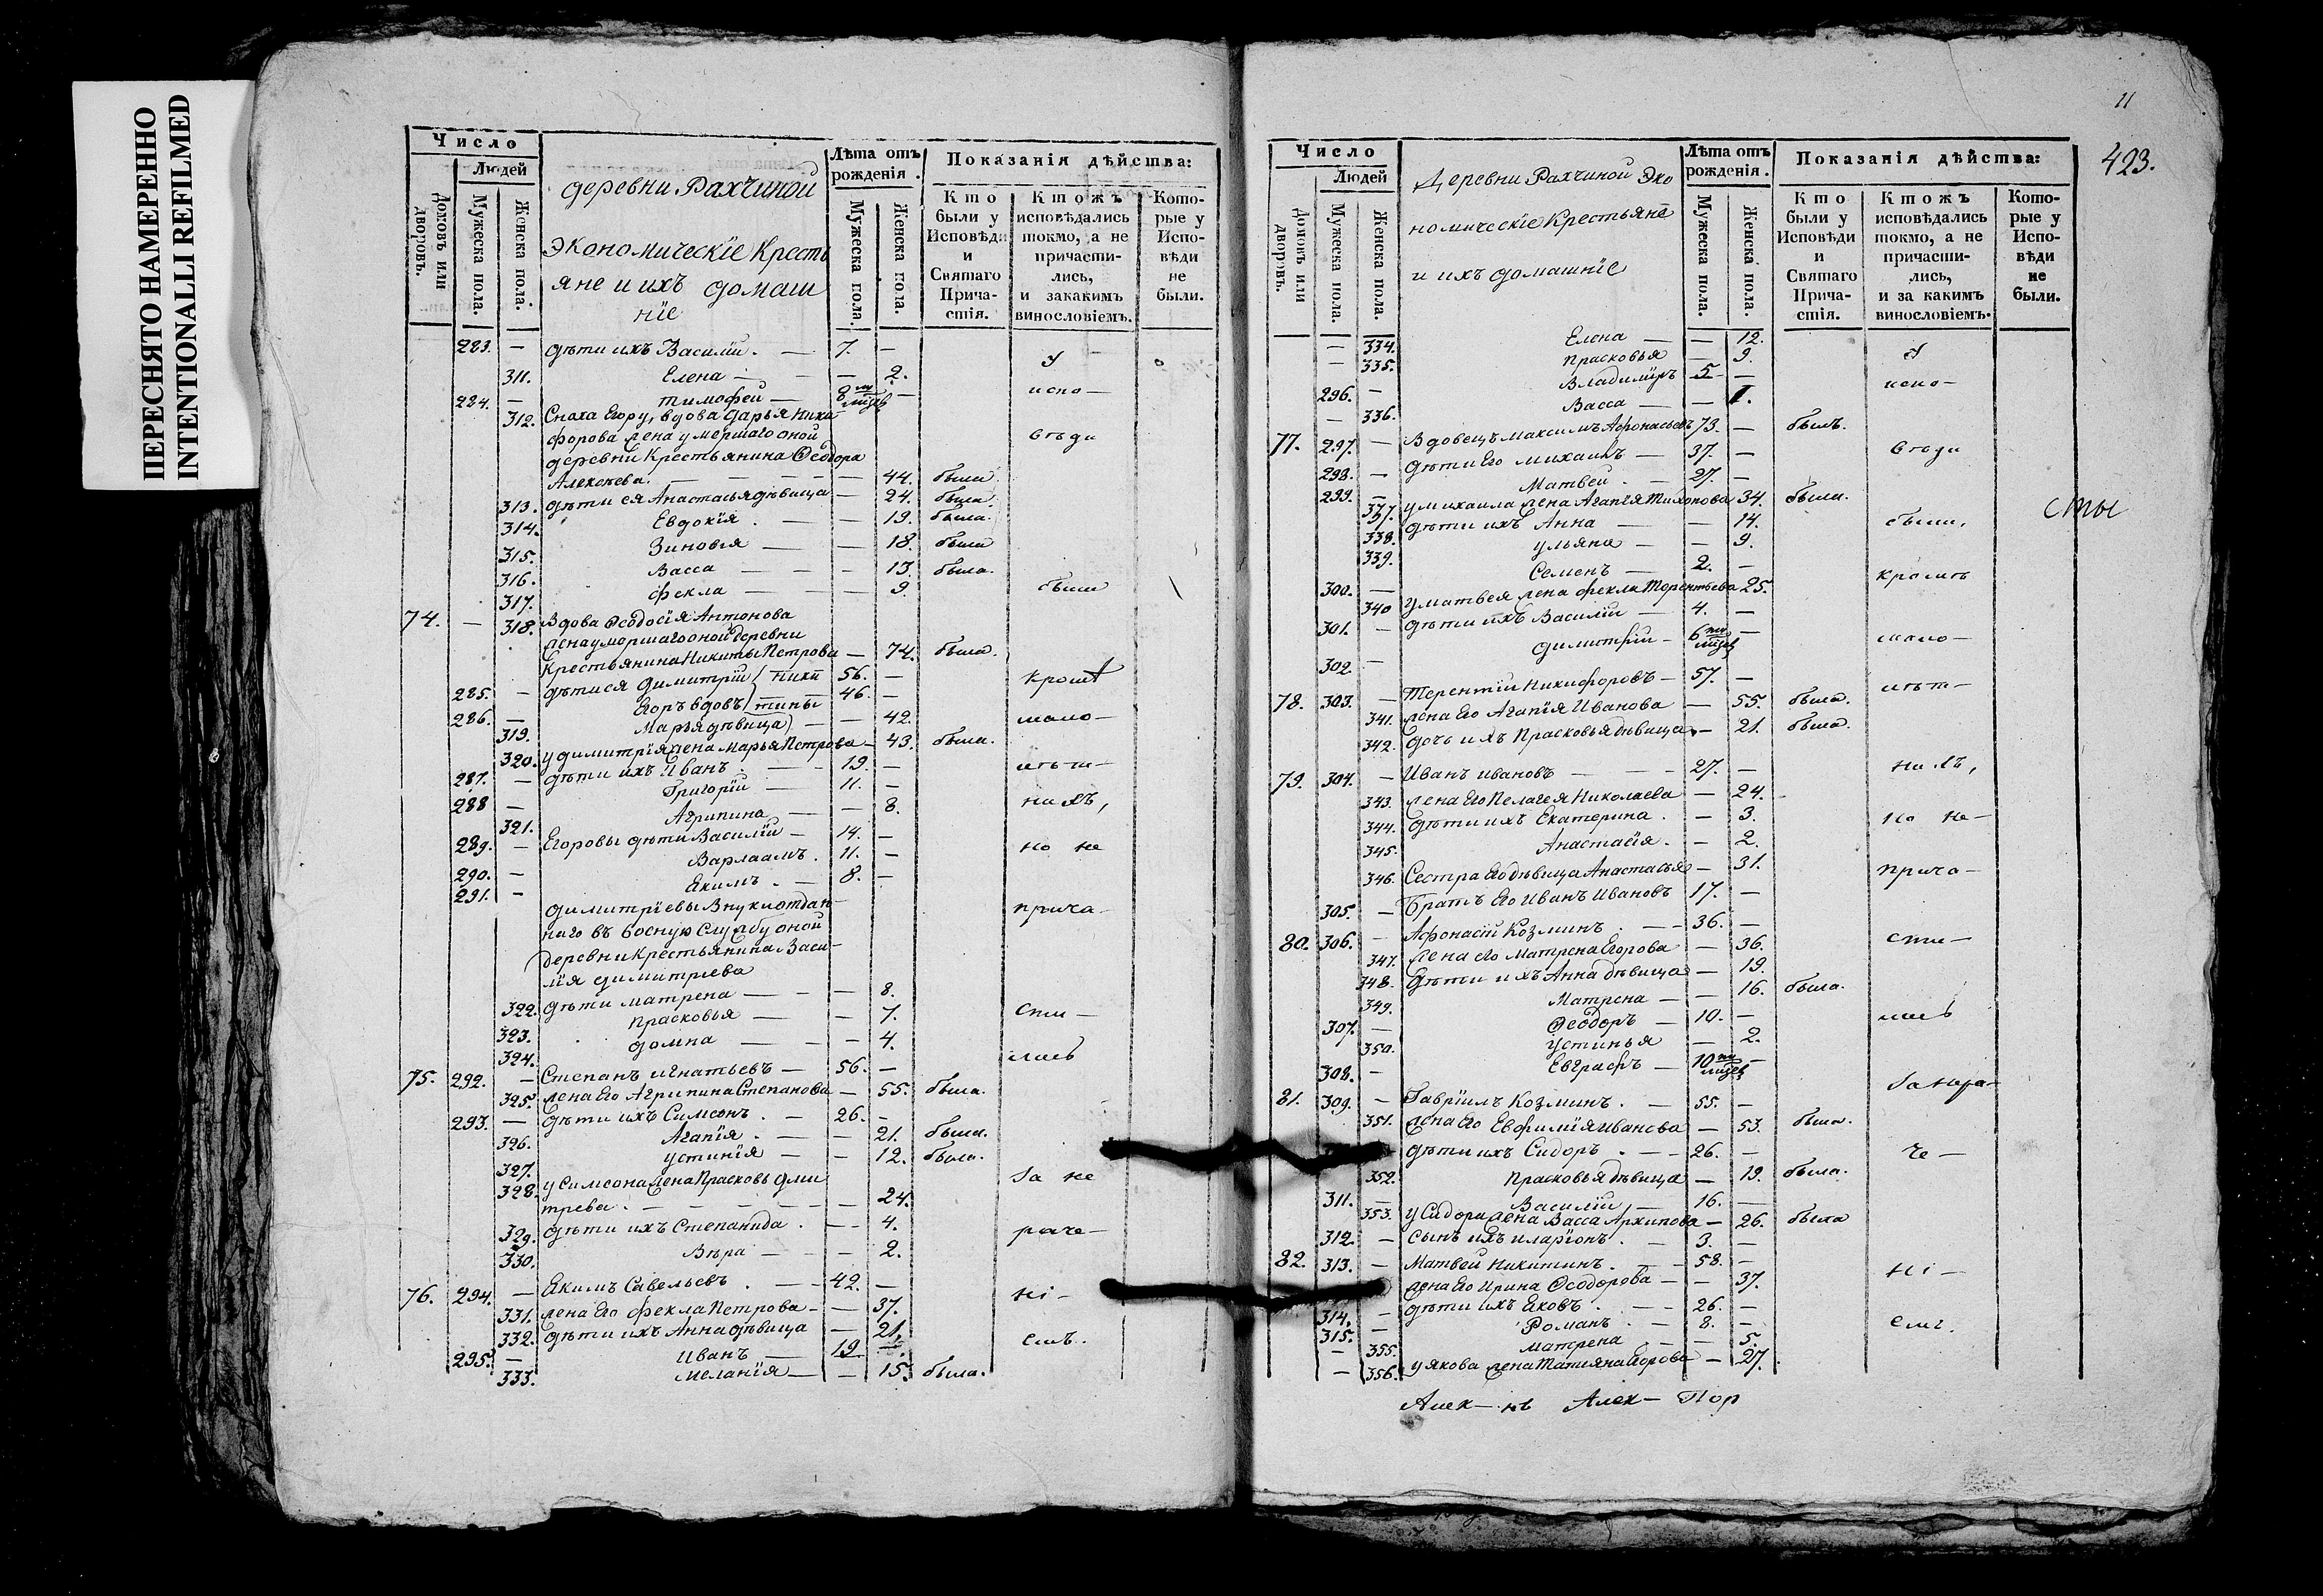 ПЕРЕСНЯТО НАМЕРЕННО
INTENTIONALLI REFILMED
Число
Людей
Домовъ или дворовъ.
Мужеска пола.
Женска пола.
деревни Рахчиной
экономическіе Кресть
яне и ихъ домаш
ніе
Лѣта отъ рожденія.
Мужеска пола.
Женска пола.
Показанія дѣйства:
Кто были у Исповѣди и Святаго Причастія.
Ктожъ исповѣдались токмо, а не причастились, и закакимъ винословіемъ.
Которые у Исповѣди не были.
283. — дѣти ихъ Василій. — 7. —
311. Елена — — 2. У
284. — Тимофей — 8 ми мцъ — испо—
312. Сноха Егору, вдова Дарья Ники
форова жена умершаго оной вѣди
деревни Крестьянина Ѳеодора
Алексѣева. — 44. была
313. дѣти ея Анастасья дѣвица — 24. была
314. Евдокія. — — 19. была.
315. Зиновія — — 18. была
316. Васса — — 13. была.
317. Фекла — — 9. были
74. — 318. Вдова Ѳеодосія Антонова
жена умершаго оной деревни
Крестьянина Никиты Петрова — 74. была.
285. — дѣти ея Димитрій Ники 56. — кромѣ
286. — Егоръ вдовъ тины 46. —
319. Марья дѣвица — — 42. мало—
320. у Димитрія жена Марья Петрова — 43. была.
287. — дѣти ихъ Иванъ. — 19. — лѣт—
288 — Григорій — 11. —
321. Агрипина — — 8. нихъ,
289. — Егоровы дѣти Василій — 14. —
290. — Варлаамъ. 11. — но не
291. — Екимъ. — 8. —
Димитріевы Внуки отдан—
наго въ военную Службу оной прича—
деревни Крестьянина Васи—
лія Димитріева
322. дѣти Матрена — — 8.
323. Прасковья — — 7. сти—
324. Домна — — 4.
лись
75. 292. — Степанъ Игнатьевъ — 56. —
325. жена Его Агрипина Степанова — 55. была.
293. — дѣти ихъ Симеонъ. — 26. —
326. Агапія. — — 21. была.
327. Устинія — — 12. была.
328. у Симеона жена Прасковья Дми За не
трева. — — 24.
329. дѣти ихъ Степанида. — 4. раче—
330. Вѣра — — 2.
76. 294. — Екимъ Савельевъ. — 42. —
331. жена Его Фекла Петрова — — 37. ні—
332. дѣти ихъ Анна дѣвица — 21.
295. — Иванъ — 19. — емъ.
333. Меланія — — 15. была.
11
423.
Число
Людей
Домовъ или дворовъ.
Мужеска пола.
Женска пола.
Деревни Рахчиной Эко
номическіе Крестьяне
и ихъ домашніе
Лѣта отъ рожденія.
Мужеска пола.
Женска пола.
Показанія дѣйства:
Кто были у Исповѣди и Святаго Причастія.
Ктожъ исповѣдались токмо, а не причастились, и за какимъ винословіемъ.
Которые у Исповѣди не были.
— 334. Елена — — 12.
— 335. Прасковья — 9. У
296. — Владиміръ 5 —
— 336. Васса — — 1. испо—
77. 297. — Вдовецъ Максимъ Афонасьевъ 73. — былъ.
298. — дѣти Его Михаилъ — 37. — вѣди
299. — Матвей. — 27. —
337. у Михаила жена Агапія Тихонова 34. была.
338. дѣти ихъ Анна — — 14. были,
сты
339. Ульяна — — 9.
300. — Семенъ — 2. — кромѣ
340 у Матвея жена Фекла Терентьева 25.
301. — дѣти ихъ Василій — 4. —
302 — Димитрій — 6 ти мцъ — мало—
78. 303. — Терентій Никифоровъ — 57. — лѣт—
341. жена Его Агапія Иванова — 55. была.
342. дочь ихъ Прасковья дѣвица — 21. была.
79. 304. — Иванъ Ивановъ — 27. — нихъ,
343. жена Его Пелагея Николаева — 24.
344. дѣти ихъ Екатерина. — 3. но не—
345. Анастасія. — 2.
346. Сестра Его дѣвица Анастасья — 31. прича—
305. — Братъ Его Иванъ Ивановъ 17. —
80. 306. — Афонасій Козминъ. — 36. —
347. жена его Матрена Егорова — 36. сти—
348. дѣти ихъ Анна дѣвица — 19.
349. Матрена — — 16. была.
307. — Ѳеодоръ — 10. — лись
350. Устинья — 2.
308. — Евграфъ — 10 ти мцъ —
81. 309. — Гавріилъ Козминъ. — 55. — За нера—
351. жена Его Евфимія Иванова — 53. была.
дѣти ихъ Сидоръ. — 26. — че—
352. Прасковья дѣвица — 19. была.
311. — Василій — 16. —
353. у Сидора жена Васса Архипова — 26. была
312. — Сынъ ихъ Иларіонъ. — 3. —
82. 313. — Матвей Никитинъ. — 58. —
жена Его Ирина Ѳеодорова — — 37. ні—
314. — дѣти ихъ Яковъ. — 26. —
315. — Романъ. — 8. — емъ.
— 355. Матрена — — 5.
— 356. у Якова жена Татияна Егорова — 27.